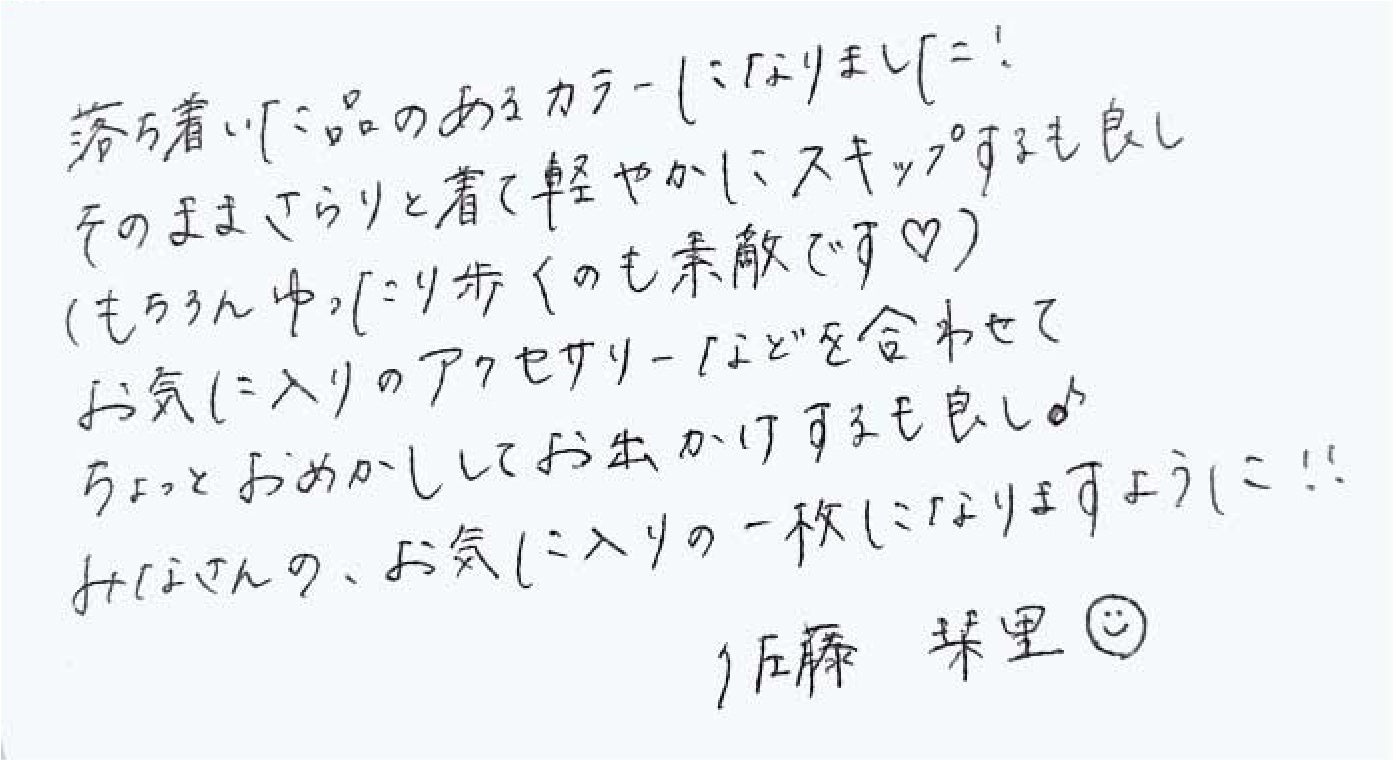 落ち着いた品のあるカラーになりました!
そのままさらりと着て軽やかにスキップするも良し
(もちろんゆったり歩くのも素敵です♡)
お気に入りのアクセサリーなどを合わせて
ちょっとおめかししてお出かけするも良し♪
みなさんの、お気に入りの一枚になりますように!!
佐藤 栞里☺